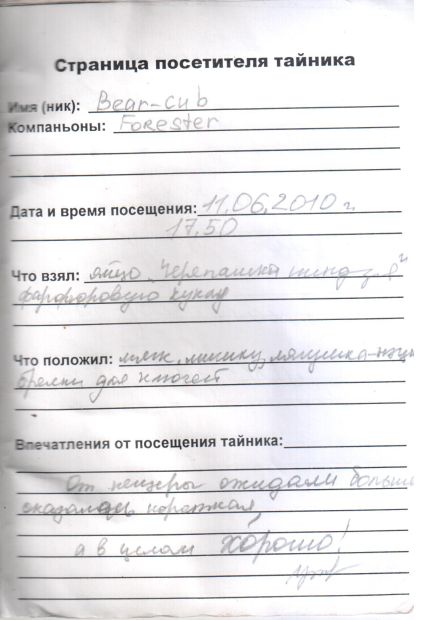 Страница посетителя тайника
Имя (ник): Bear-cub
Компаньоны: Forester
Дата и время посещения: 11.06.2010 г.
17.50
Что взял: яйцо "Черепашки
фарфоровую куклу
Что положил: мяч, мишку, лягушка-
брелки для ключей
Впечатления от посещения тайника:
От пещеры ожидали больше
оказалась короткая,
а в целом хорошо!